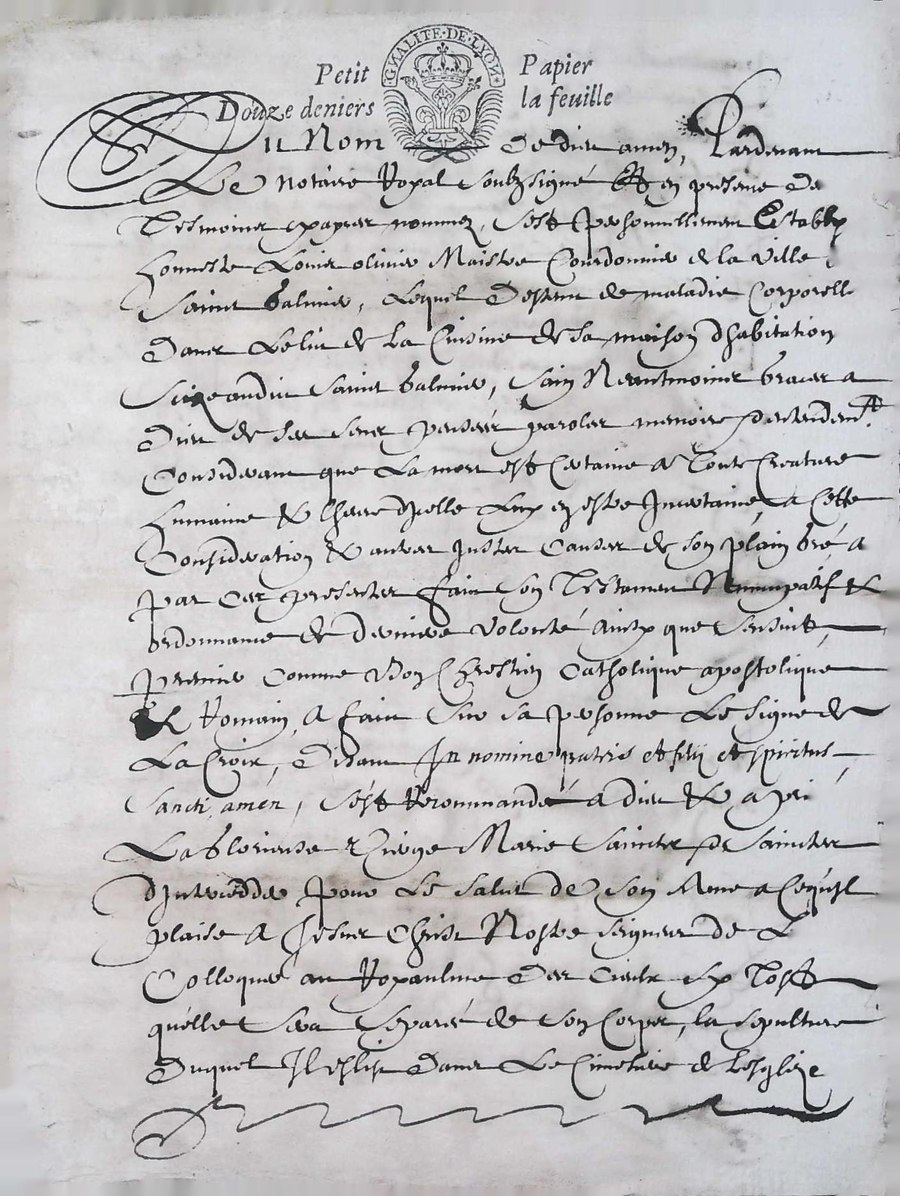 GNALITE·DE·LYON
Petit Papier
Douze deniers la feuille
Du Nom de dieu amen, Pardevant
Le notaire Royal soubzsigné & en presence des
tesmoins appres nommez, s'est personnellement estably
honneste Louis olivier Maistre Courdonnier de la ville
Saint Galmier, Lequel detenu de maladie Corporelle
dans Le lit de La Cuisine de sa maison d'habitation
size audit Saint Galmier, sain Neantmoins graces a
Dieu de ses sens pensées paroles memoire & entendem.t
Considerant que La mort est Certaine a Toute Creature
humaine & l'heure d'jcelle Luy estre Incertaine, a Cette
Consideration & autres justes Causes de son plain gré a
par Ces presentes fait son Testament Nuncupatif &
ordonnance de derniere volonté ainsy que sensuit
premier Comme Bon Chrestien Catholique apostolique
& Romain, a fait sur sa personne Le signe de
La Croix, Disant In nomine patris et filij et spiritus
Sancti amen, s'est Recommandé a dieu & a prié
La Glorieuse Vierge Marie Saincts & Sainctes
d'Interceder pour Le salut de son Ame a Cequil
plaise A Jesus Christ Nostre seigneur de L
Colloquer au Royaulme des Cieulx sy tost
quelle sera separée de son Corps, la sepulture
Duquel Il eslit Dans Le Cimetiere de Lesglize